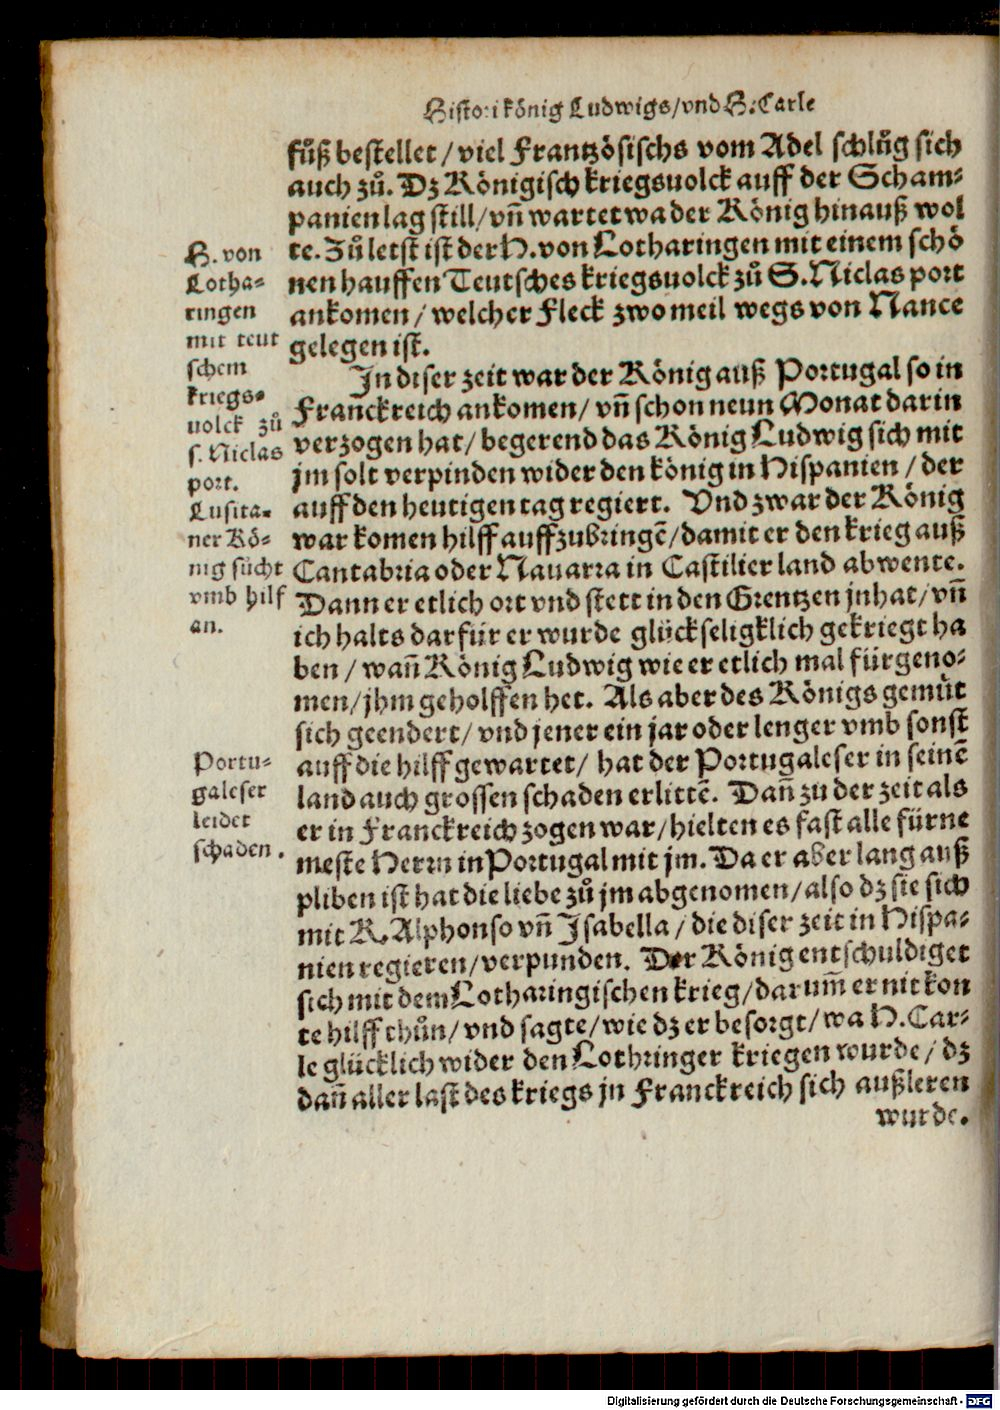 Histori könig Ludwigs/vnd H. Carle
fůß bestellet/viel Frantzösischs vom Adel schlůg sich
auch zů. Dz Königisch kriegsuolck auff der Scham-
panien lag still/vñ wartet wa der König hinauß wol
te. Zů letst ist der H. von Lotharingen mit einem schö
nen hauffen Teutsches kriegsuolck zů S. Niclas port
ankomen/welcher Fleck zwo meil wegs von Nance
gelegen ist.
In diser zeit war der König auß Portugal so in
Franckreich ankomen/vñ schon neun Monat darin
verzogen hat/begerend das König Ludwig sich mit
jm solt verpinden wider den könig in Hispanien/der
auff den heutigen tag regiert. Vnd zwar der König
war komen hilff auffzubringẽ/damit er den krieg auß
Cantabria oder Nauarra in Castilier land abwente.
Dann er etlich ort vnd stett in den Grentzen jnhat/vñ
ich halts darfür er wurde glückseligklich gekriegt ha
ben/wañ König Ludwig wie er etlich mal fürgeno-
men/jhm geholffen het. Als aber des Königs gemüt
sich geendert/vnd jener ein jar oder lenger vmb sonst
auff die hilff gewartet/hat der Portugaleser in seinẽ
land auch grossen schaden erlittẽ. Dañ zu der zeit als
er in Franckreich zogen war/hielten es fast alle fürne
meste Herrn in Portugal mit jm. Da er aber lang auß
pliben ist hat die liebe zů jm abgenomen/also dz sie sich
mit K. Alphonso vñ Isabella/die diser zeit in Hispa-
nien regieren/verpunden. Der König entschuldiget
sich mit dem Lotharingischen krieg/darum̃ er nit kon
te hilff thůn/vnd sagte/wie dz er besorgt/wa H. Car-
le glücklich wider den Lothringer kriegen wurde/dz
dañ aller last des kriegs jn Franckreich sich außleren
wurde.
H. von
Lotha-
ringen
mit teut
schem
kriegs-
uolck zů
s. Niclas
port.
Lusita-
ner Kö-
nig sücht
vmb hilf
an.
Portu-
galeser
leidet
schaden.
Digitalisierung gefördert durch die Deutsche Forschungsgemeinschaft - DFG